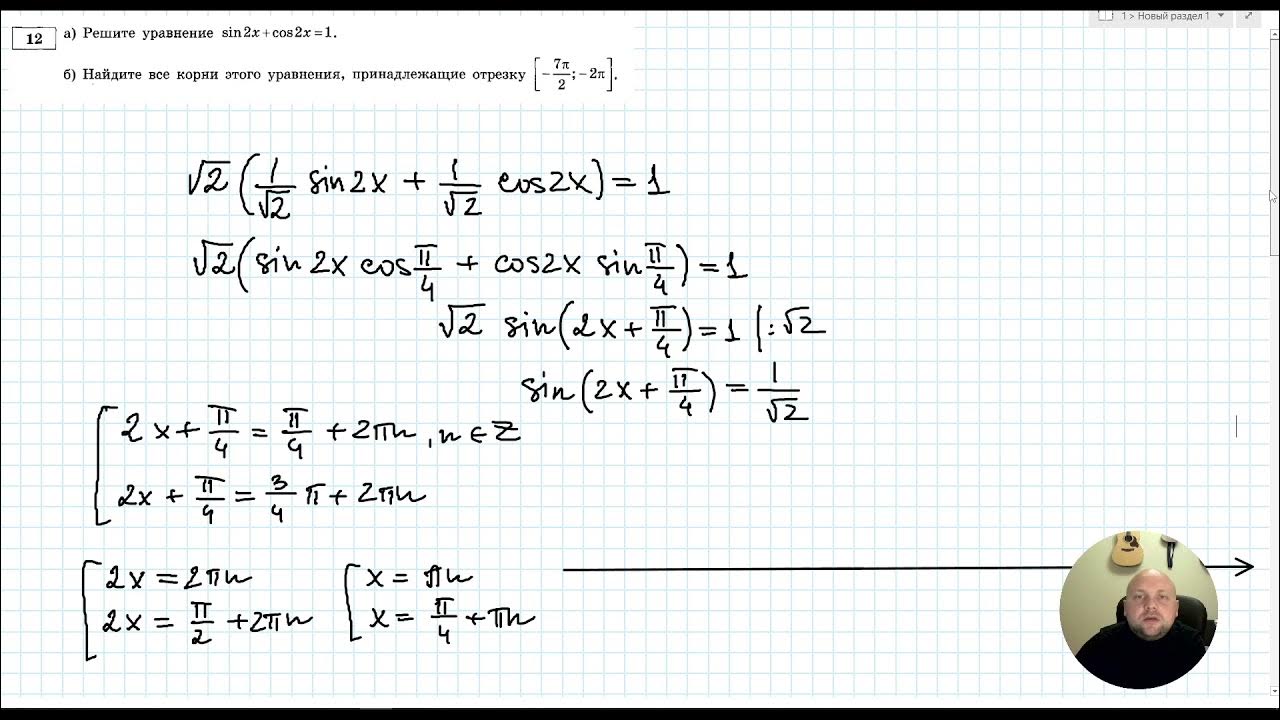 1 > Новый раздел 1
12 а) Решите уравнение sin2x+cos2x=1.
б) Найдите все корни этого уравнения, принадлежащие отрезку [-7π/2; -2π].
√2 (1/√2 sin2x + 1/√2 cos2x) = 1
√2 (sin 2x cos π/4 + cos2x sin π/4) = 1
√2 sin(2x + π/4) = 1 |:√2
sin(2x + π/4) = 1/√2
[ 2x + π/4 = π/4 + 2πn, n ∈ Z
2x + π/4 = 3/4 π + 2πn
[ 2x = 2πn [ x = πn
2x = π/2 + 2πn x = π/4 + πn